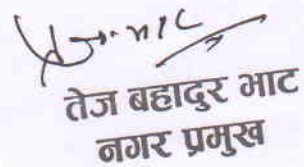 तेज बहादुर भाट
नगर प्रमुख